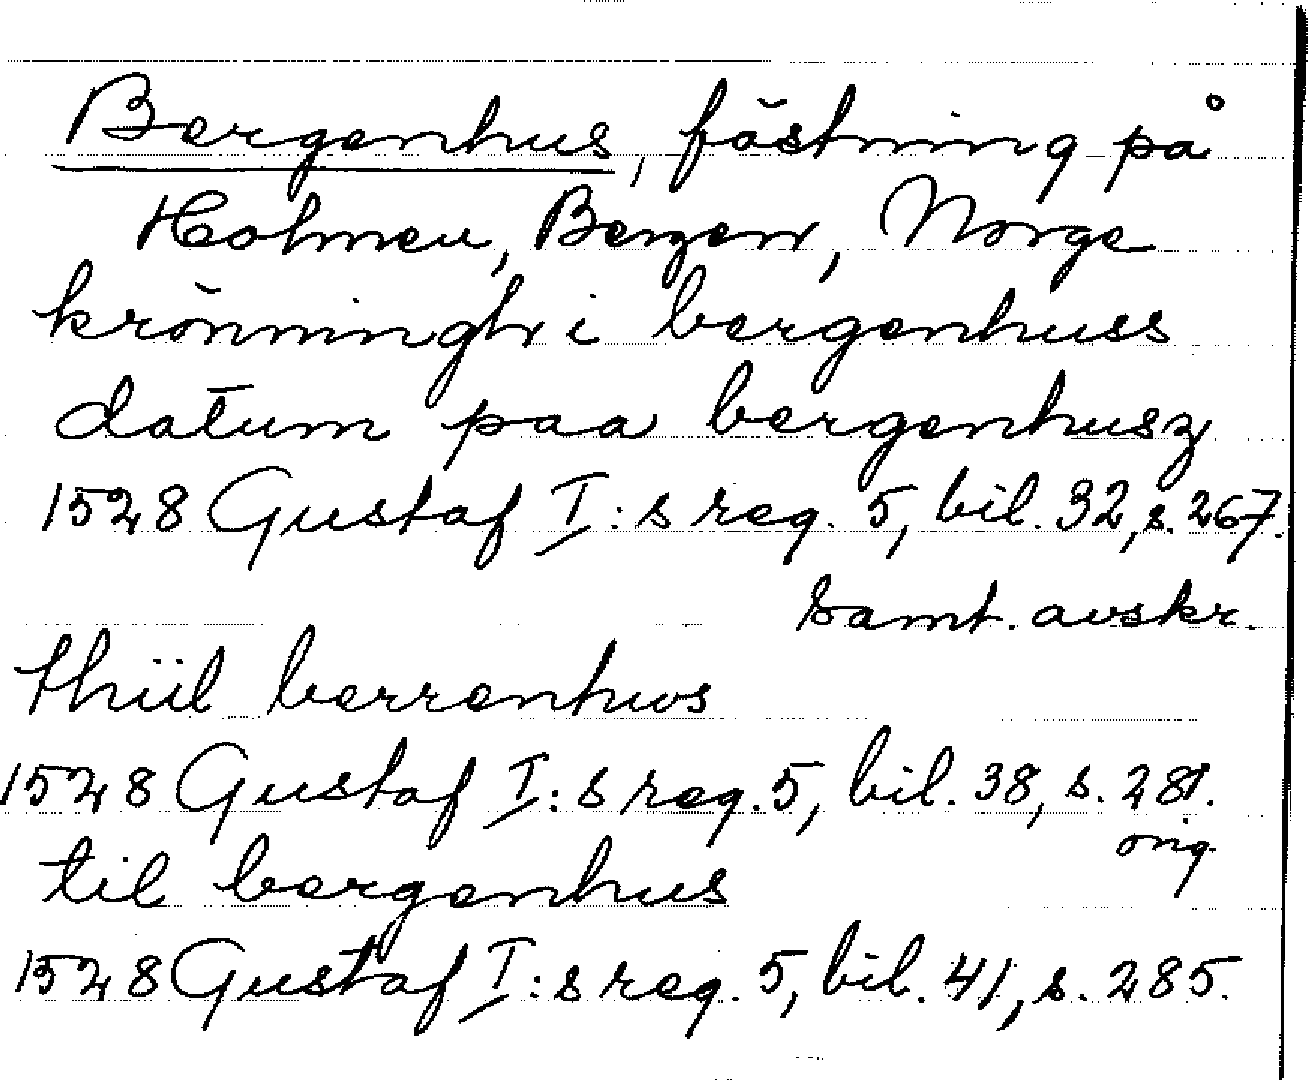 Bergenhus, fästning på
Holmen, Bergen, Norge
krönninghr i bergenhuss
datum paa bergenhusz
1528 Gustaf I:s reg. 5, bil. 32, s. 267.
Samt. avskr.
thiil berrenhws
1528 Gustaf I:s reg. 5, bil. 38, s. 281.
orig.
til bergenhus
1528 Gustaf I:s reg. 5, bil. 41, s. 285.